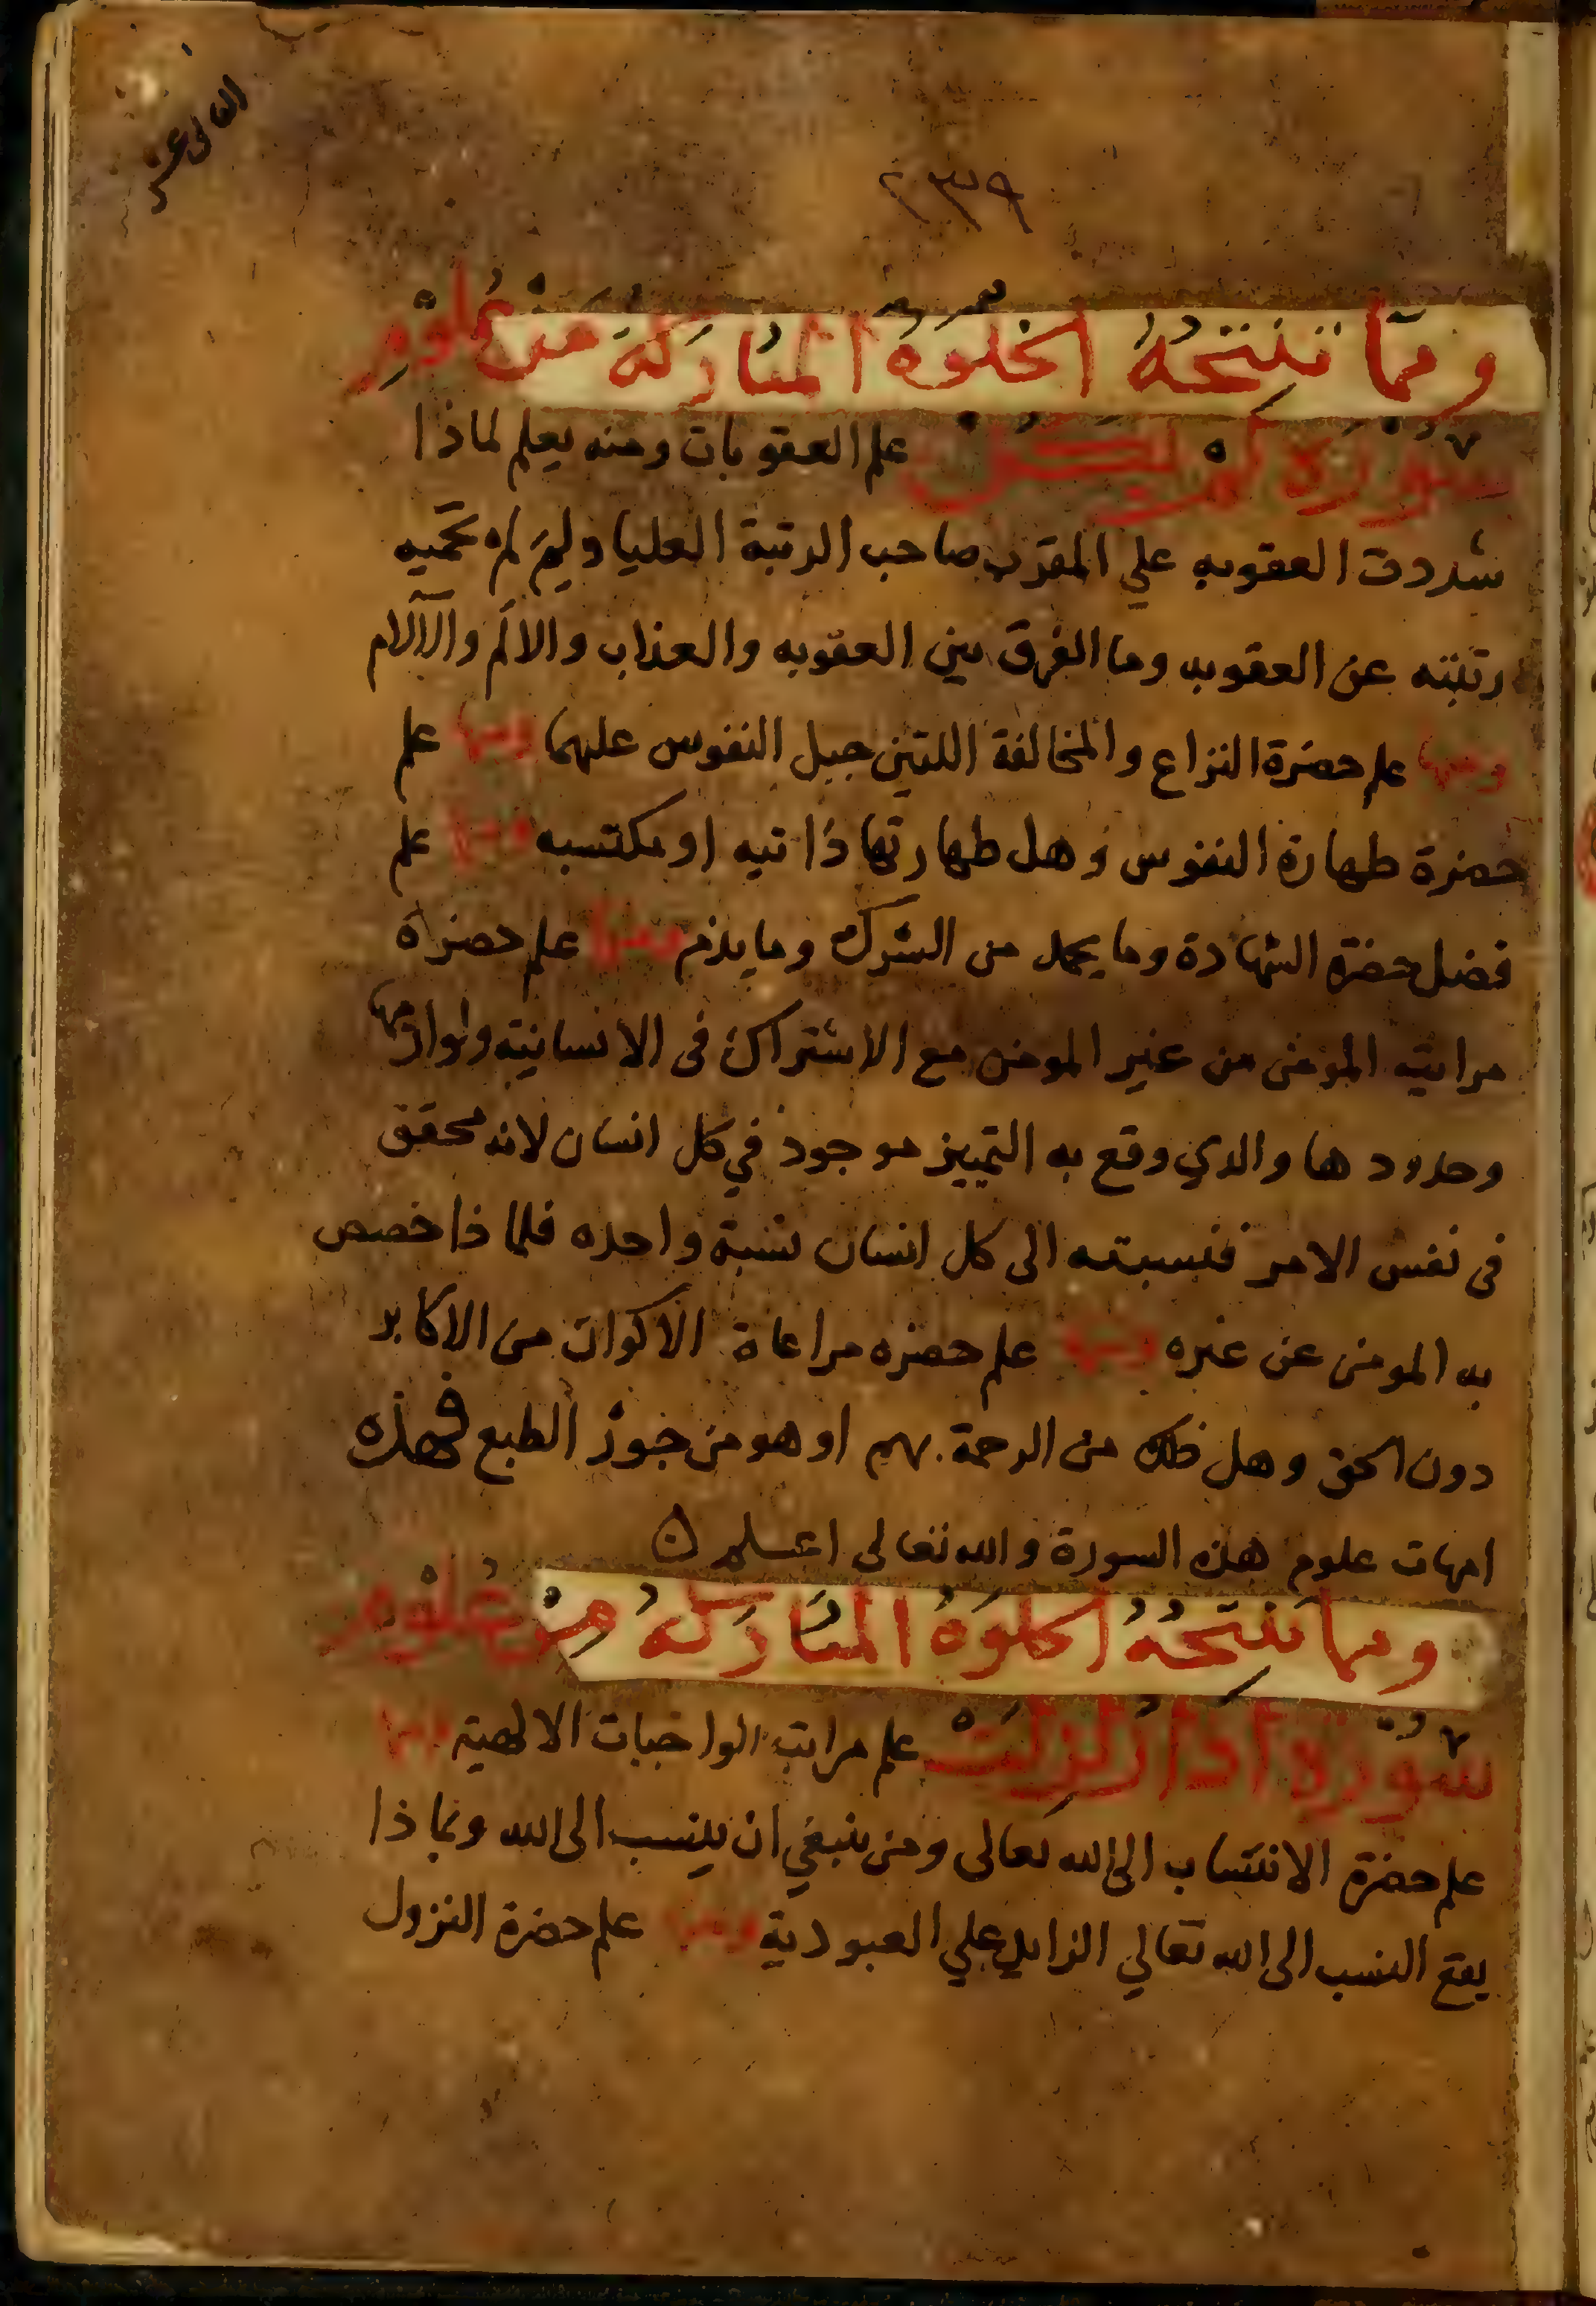 ٢٣٩
ومما تنتجه الخلوة المباركة من علوم
سورة لم يكن علم العقوبات ومنه يعلم لماذا
شددت العقوبه علي المقرب صاحب الرتبة العليا ولم لم تحميه
رتبته عن العقوبه وما الفرق بين العقوبه والعذاب والالم والآلام
ومنها علم حضرة النزاع والمخالفة اللتين جبل النفوس عليهما ومنها علم
حضرة طهارة النفوس وهل طهارتها ذاتيه او مكتسبه ومنها علم
فضل حضرة الشهادة وما يحمد من الشرك وما يذم ومنها علم حضرة
مراتبه المومن من غير المومن مع الاشتراك في الانسانية ولوازمها
وحدودها والدي وقع به التمييز موجود في كل انسان لانه محقق
في نفس الامر فنسبته الى كل انسان نسبة واحده فلما ذا خصص
به المومن عن غيره ومنها علم حضره مراعاة الاكوان من الاكابر
دون الحق وهل ذلك من الرحمة بهم او هو من خور الطبع فهذه
امهات علوم هذه السورة والله تعالى اعلم ن
ومما تنتجه الخلوة المباركة من علوم
سورة اذا زلزلت علم مراتب الواجبات الالهية ومنها
علم حضرة الانتساب الى الله تعالى ومن ينبغي ان ينسب الى الله وبماذا
يقع النسب الى الله تعالي الزايد علي العبودية ومنها علم حضرة النزول